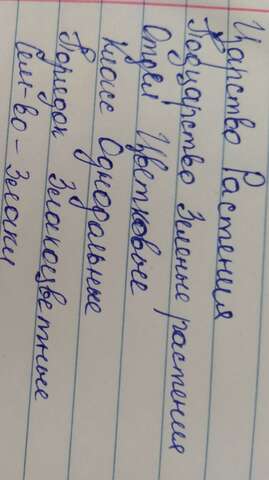 Царство Растения
Подцарство Зеленые растения
Отдел Цветковые
Класс Однодольные
Порядок Злакоцветные
Сем-во - Злаки